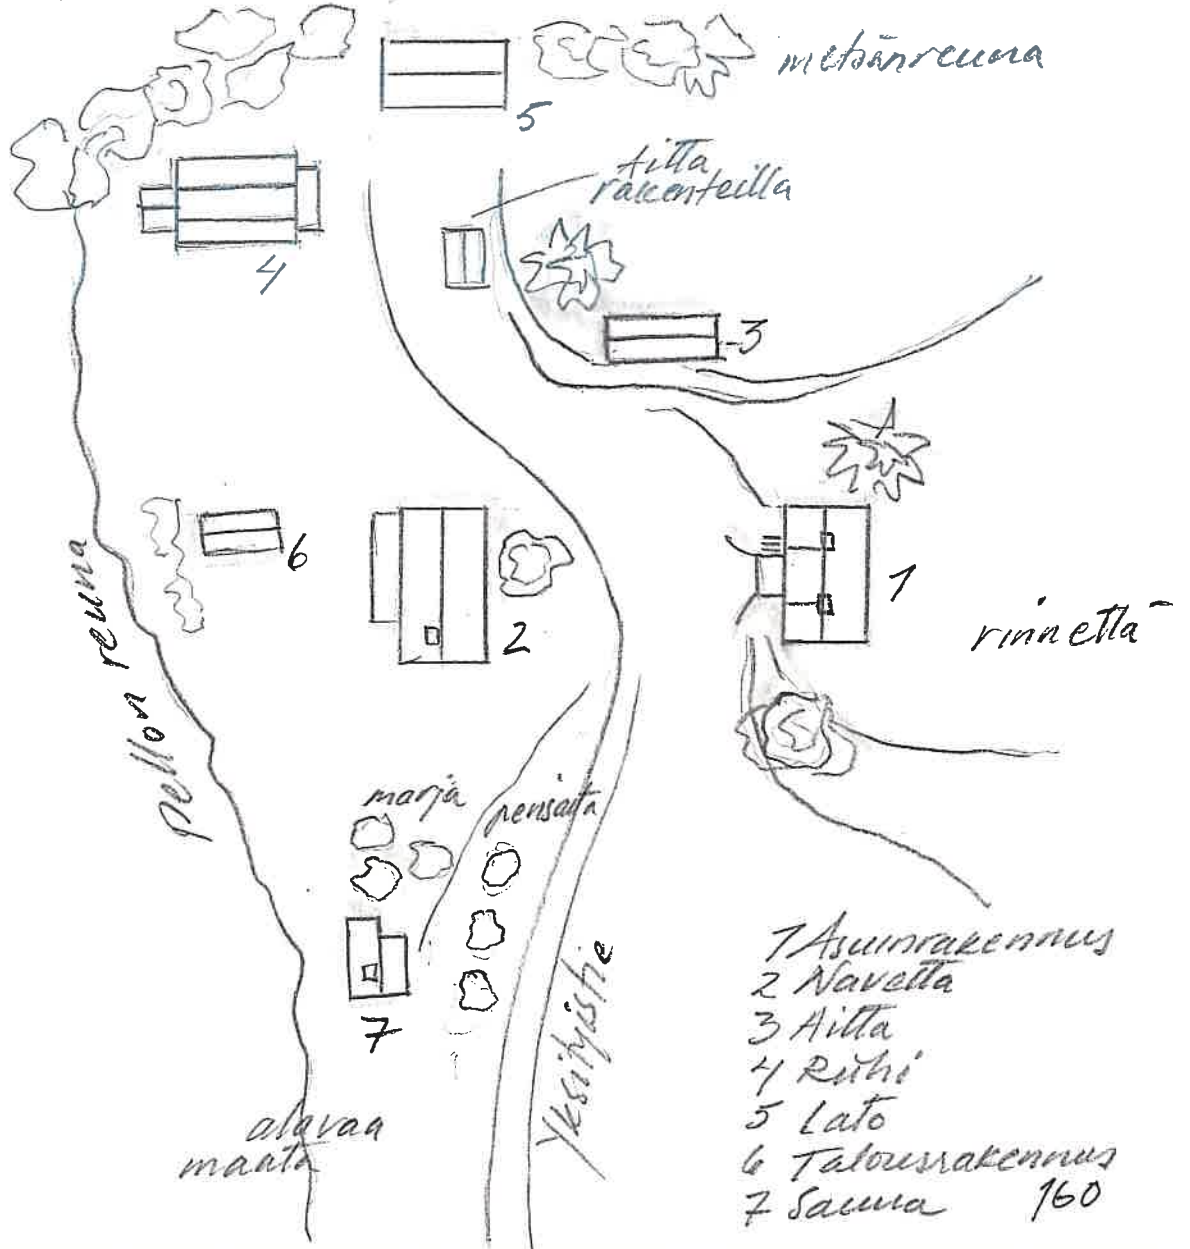 metsänreuna
5
Aitta
rakenteilla
4
3
6
2
1
rinnettä
pellon reuna
marja
pensaita
7
Yksityistie
alavaa
maata
1 Asuinrakennus
2 Navetta
3 Aitta
4 Riihi
5 Lato
6 Talousrakennus
7 Sauna 160